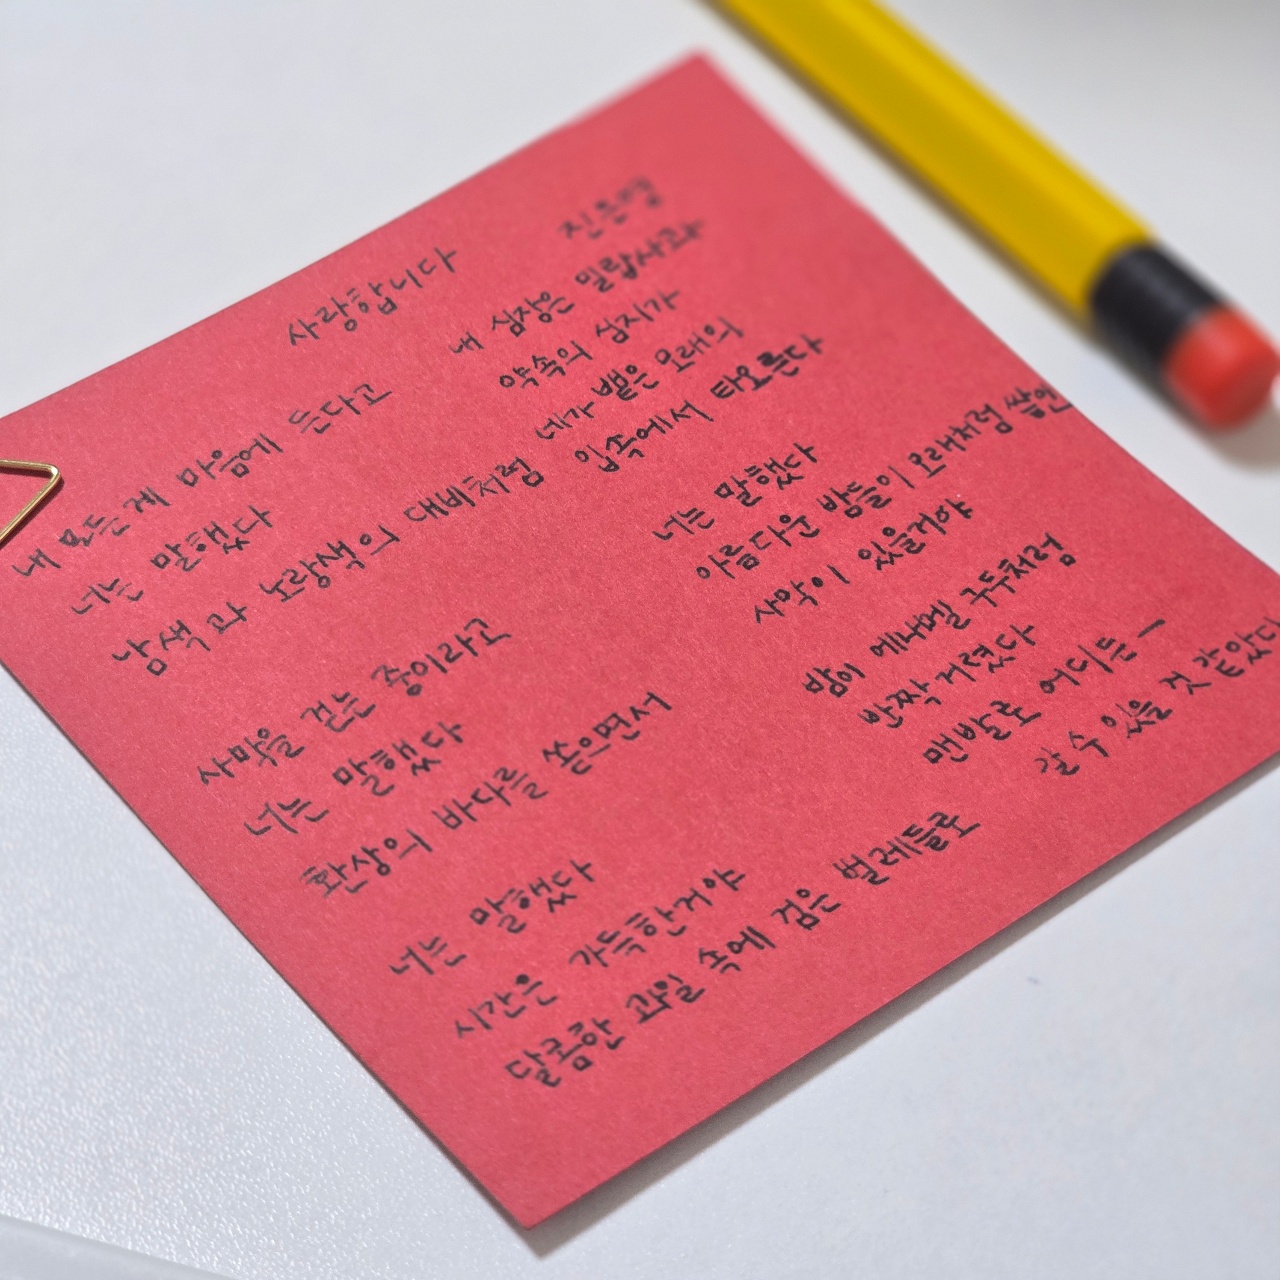 사랑합니다
진은영
내 모든게 마음에 든다고
너는 말했다
남색과 노랑색의 대비처럼
사막을 걷는 중이라고
너는 말했다
환상의 바다를 쏟으면서
너는 말했다
시간은 가득한거야
달콤한 과일 속에 검은 벌레들로
내 심장은 밀랍사과
약속의 심지가
네가 뱉은 모래의
입속에서 타오른다
너는 말했다
아름다운 밤들이 모래처럼 쌓인
사막이 있을거야
밤이 에나멜 구두처럼
반짝거렸다
맨발로 어디든―
갈 수 있을 것 같았다